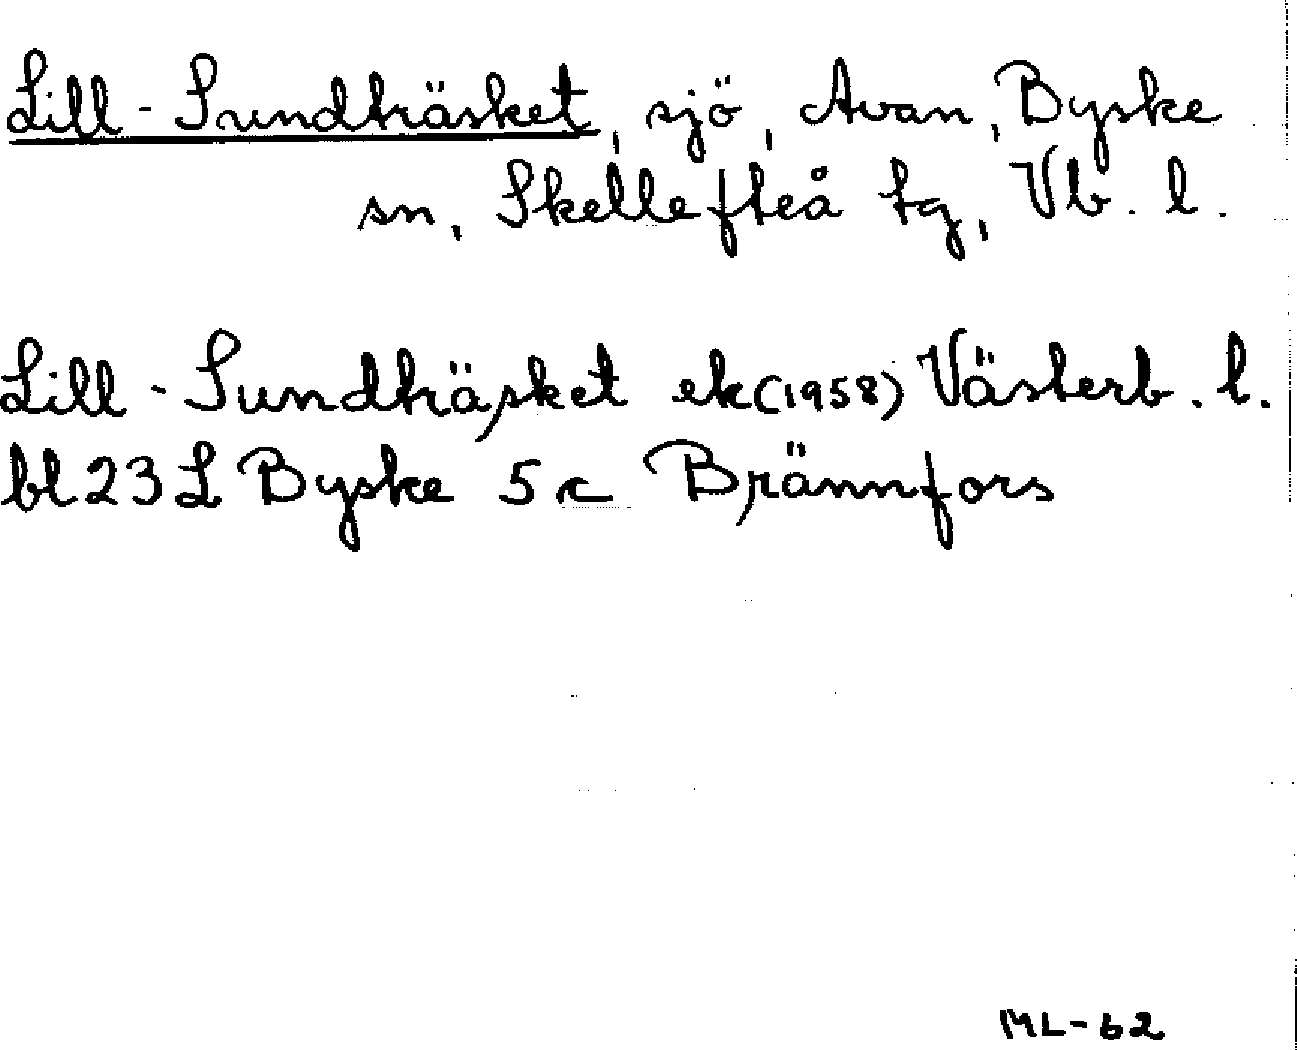 Lill-Sundträsket, sjö, Avan, Byske
sn, Skellefteå tg, Vb. l.
Lill-Sundträsket ek (1958) Västerb. l.
bl 23 L Byske 5 c Brännfors
ML-62